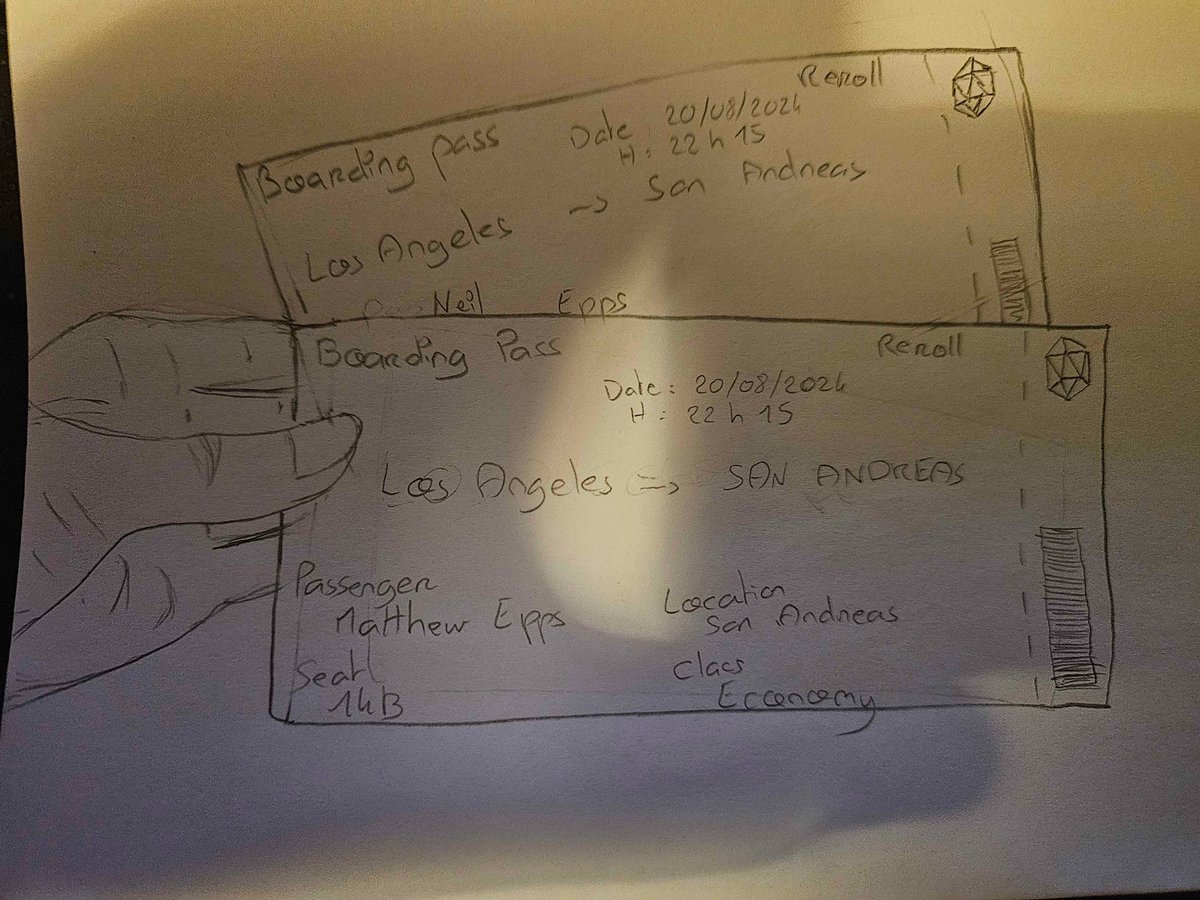 Reroll
Boarding pass
Date : 20/08/2024
H : 22 h 15
Los Angeles -> San Andreas
Neil Epps
Boarding Pass
Reroll
Date : 20/08/2024
H : 22 h 15
Los Angeles => SAN ANDREAS
Passenger
Matthew Epps
Location
San Andreas
Seat
14B
Class
Economy